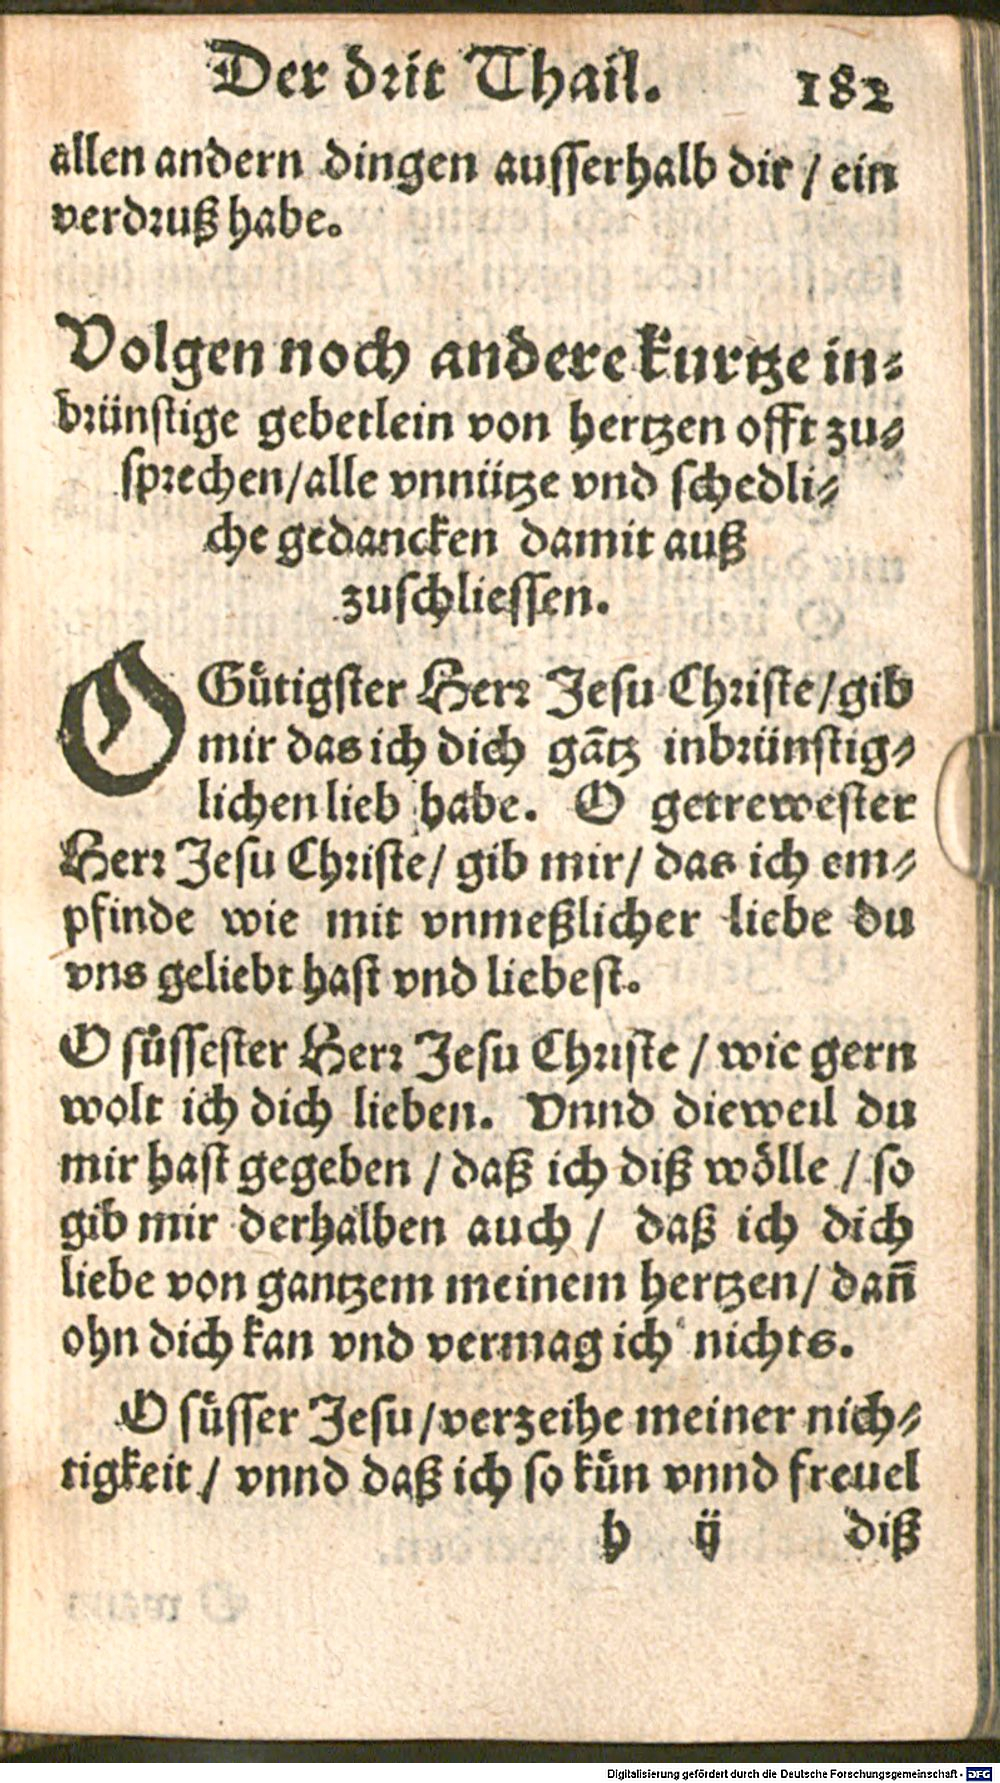 Der drit Thail. 182
allen andern dingen ausserhalb dir / ein
verdruß habe.
Volgen noch andere kurtze in⸗
brünstige gebetlein von hertzen offt zu⸗
sprechen/alle vnnütze vnd schedli⸗
che gedancken damit auß
zuschliessen.
O Gütigster Herr Jesu Christe/gib
mir das ich dich gātz inbrünstig⸗
lichen lieb habe. O getrewester
Herr Jesu Christe/ gib mir/ das ich em⸗
pfinde wie mit vnmeßlicher liebe du
vns geliebt hast vnd liebest.
O süssester Herr Jesu Christe / wie gern
wolt ich dich lieben. Vnnd dieweil du
mir hast gegeben / daß ich diß wölle / so
gib mir derhalben auch / daß ich dich
liebe von gantzem meinem hertzen/ dan̄
ohn dich kan vnd vermag ich nichts.
O süsser Jesu/verzeihe meiner nich⸗
tigkeit / vnnd daß ich so kün vnnd freuel
h ij diß
Digitalisierung gefördert durch die Deutsche Forschungsgemeinschaft - DFG